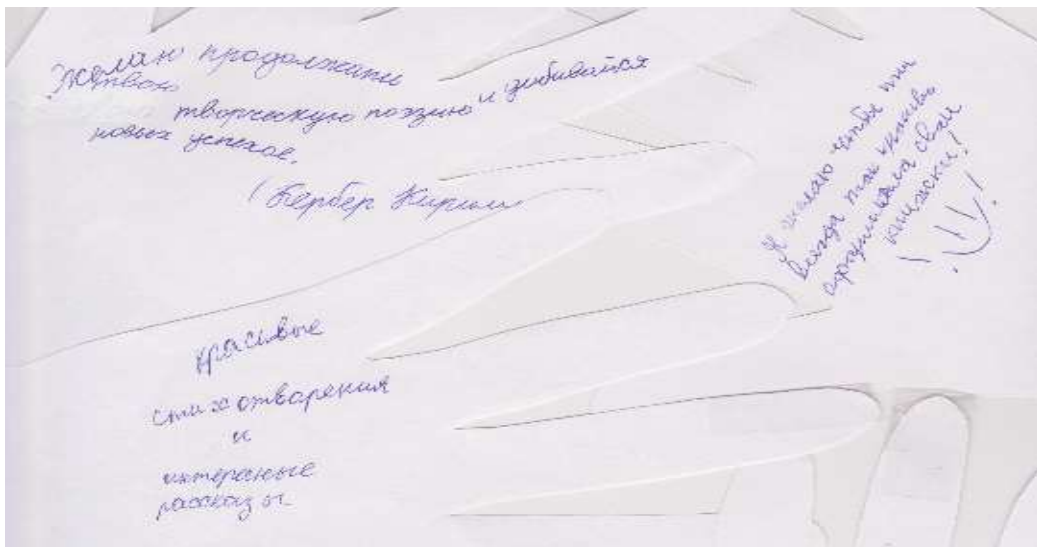 Желаю продолжать
творческую поэзию и
новых успехов.
(Гербер Кирилл
Я желаю чтобы ты
всегда так красиво
оформляла свои
книжки!
красивые
стихотварения
и
интересные
рассказы